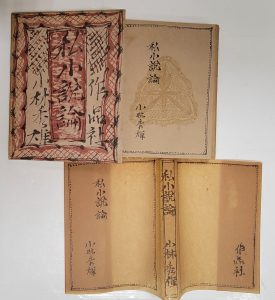 作品社
私小説論
小林秀雄
私小説論
小林秀雄
私小説論
小林秀雄
私小説論
小林秀雄
作品社